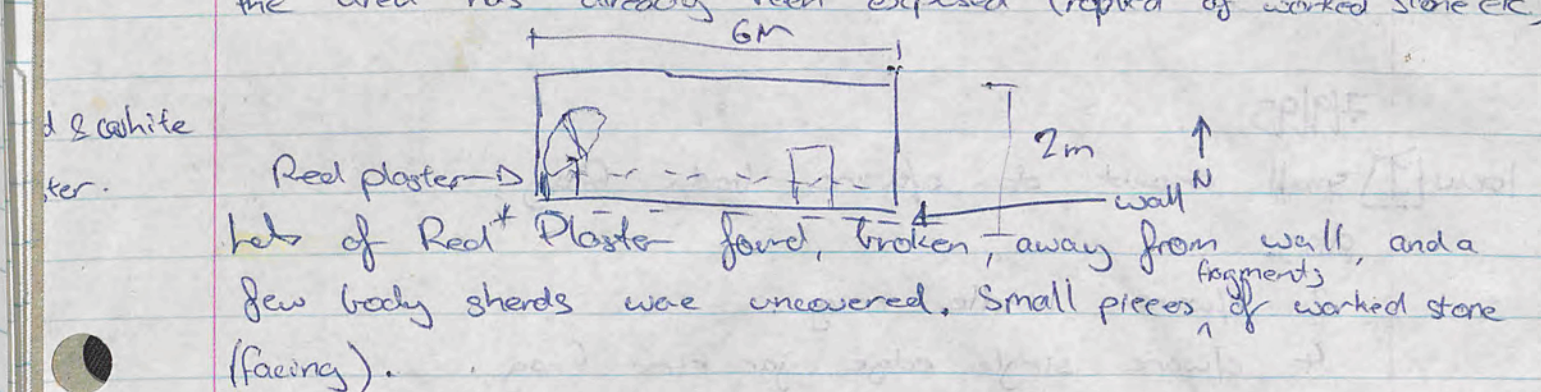 the area has already been exposed (removal of worked stone etc)
6M
d & white
ter.
Red plaster
2m
N
wall
Lots of Red* Plaster found, broken, away from wall, and a
fragments
few body sherds wae uncovered. Small pieces ^ of worked stone
(facing).